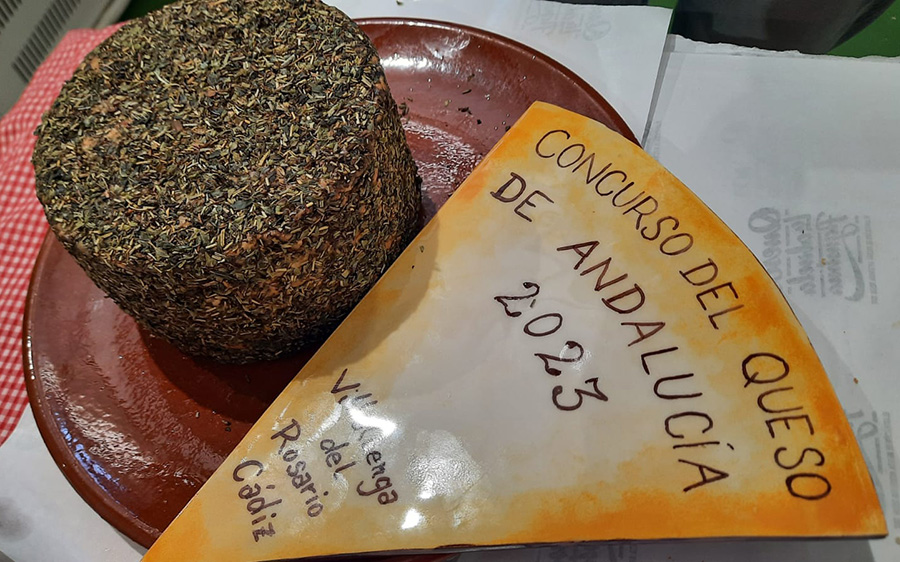 CONCURSO DEL QUESO
DE ANDALUCÍA
2023
del
Rosario
Cádiz